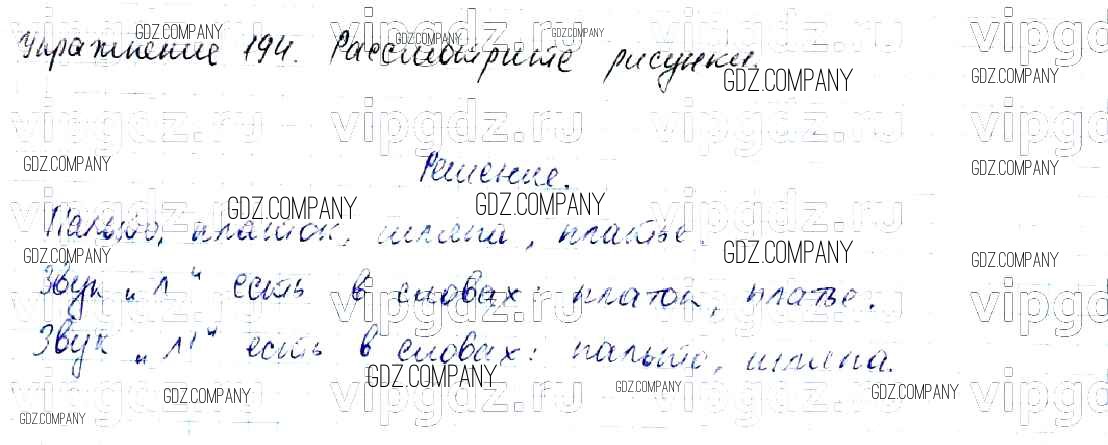 Упражнение 194. Рассмотрите рисунки.
Решение.
Пальто, платок, шляпа, платье.
Звук „л“ есть в словах: платок, платье.
Звук „л'“ есть в словах: пальто, шляпа.
vipgdz.ru
GDZ.COMPANY